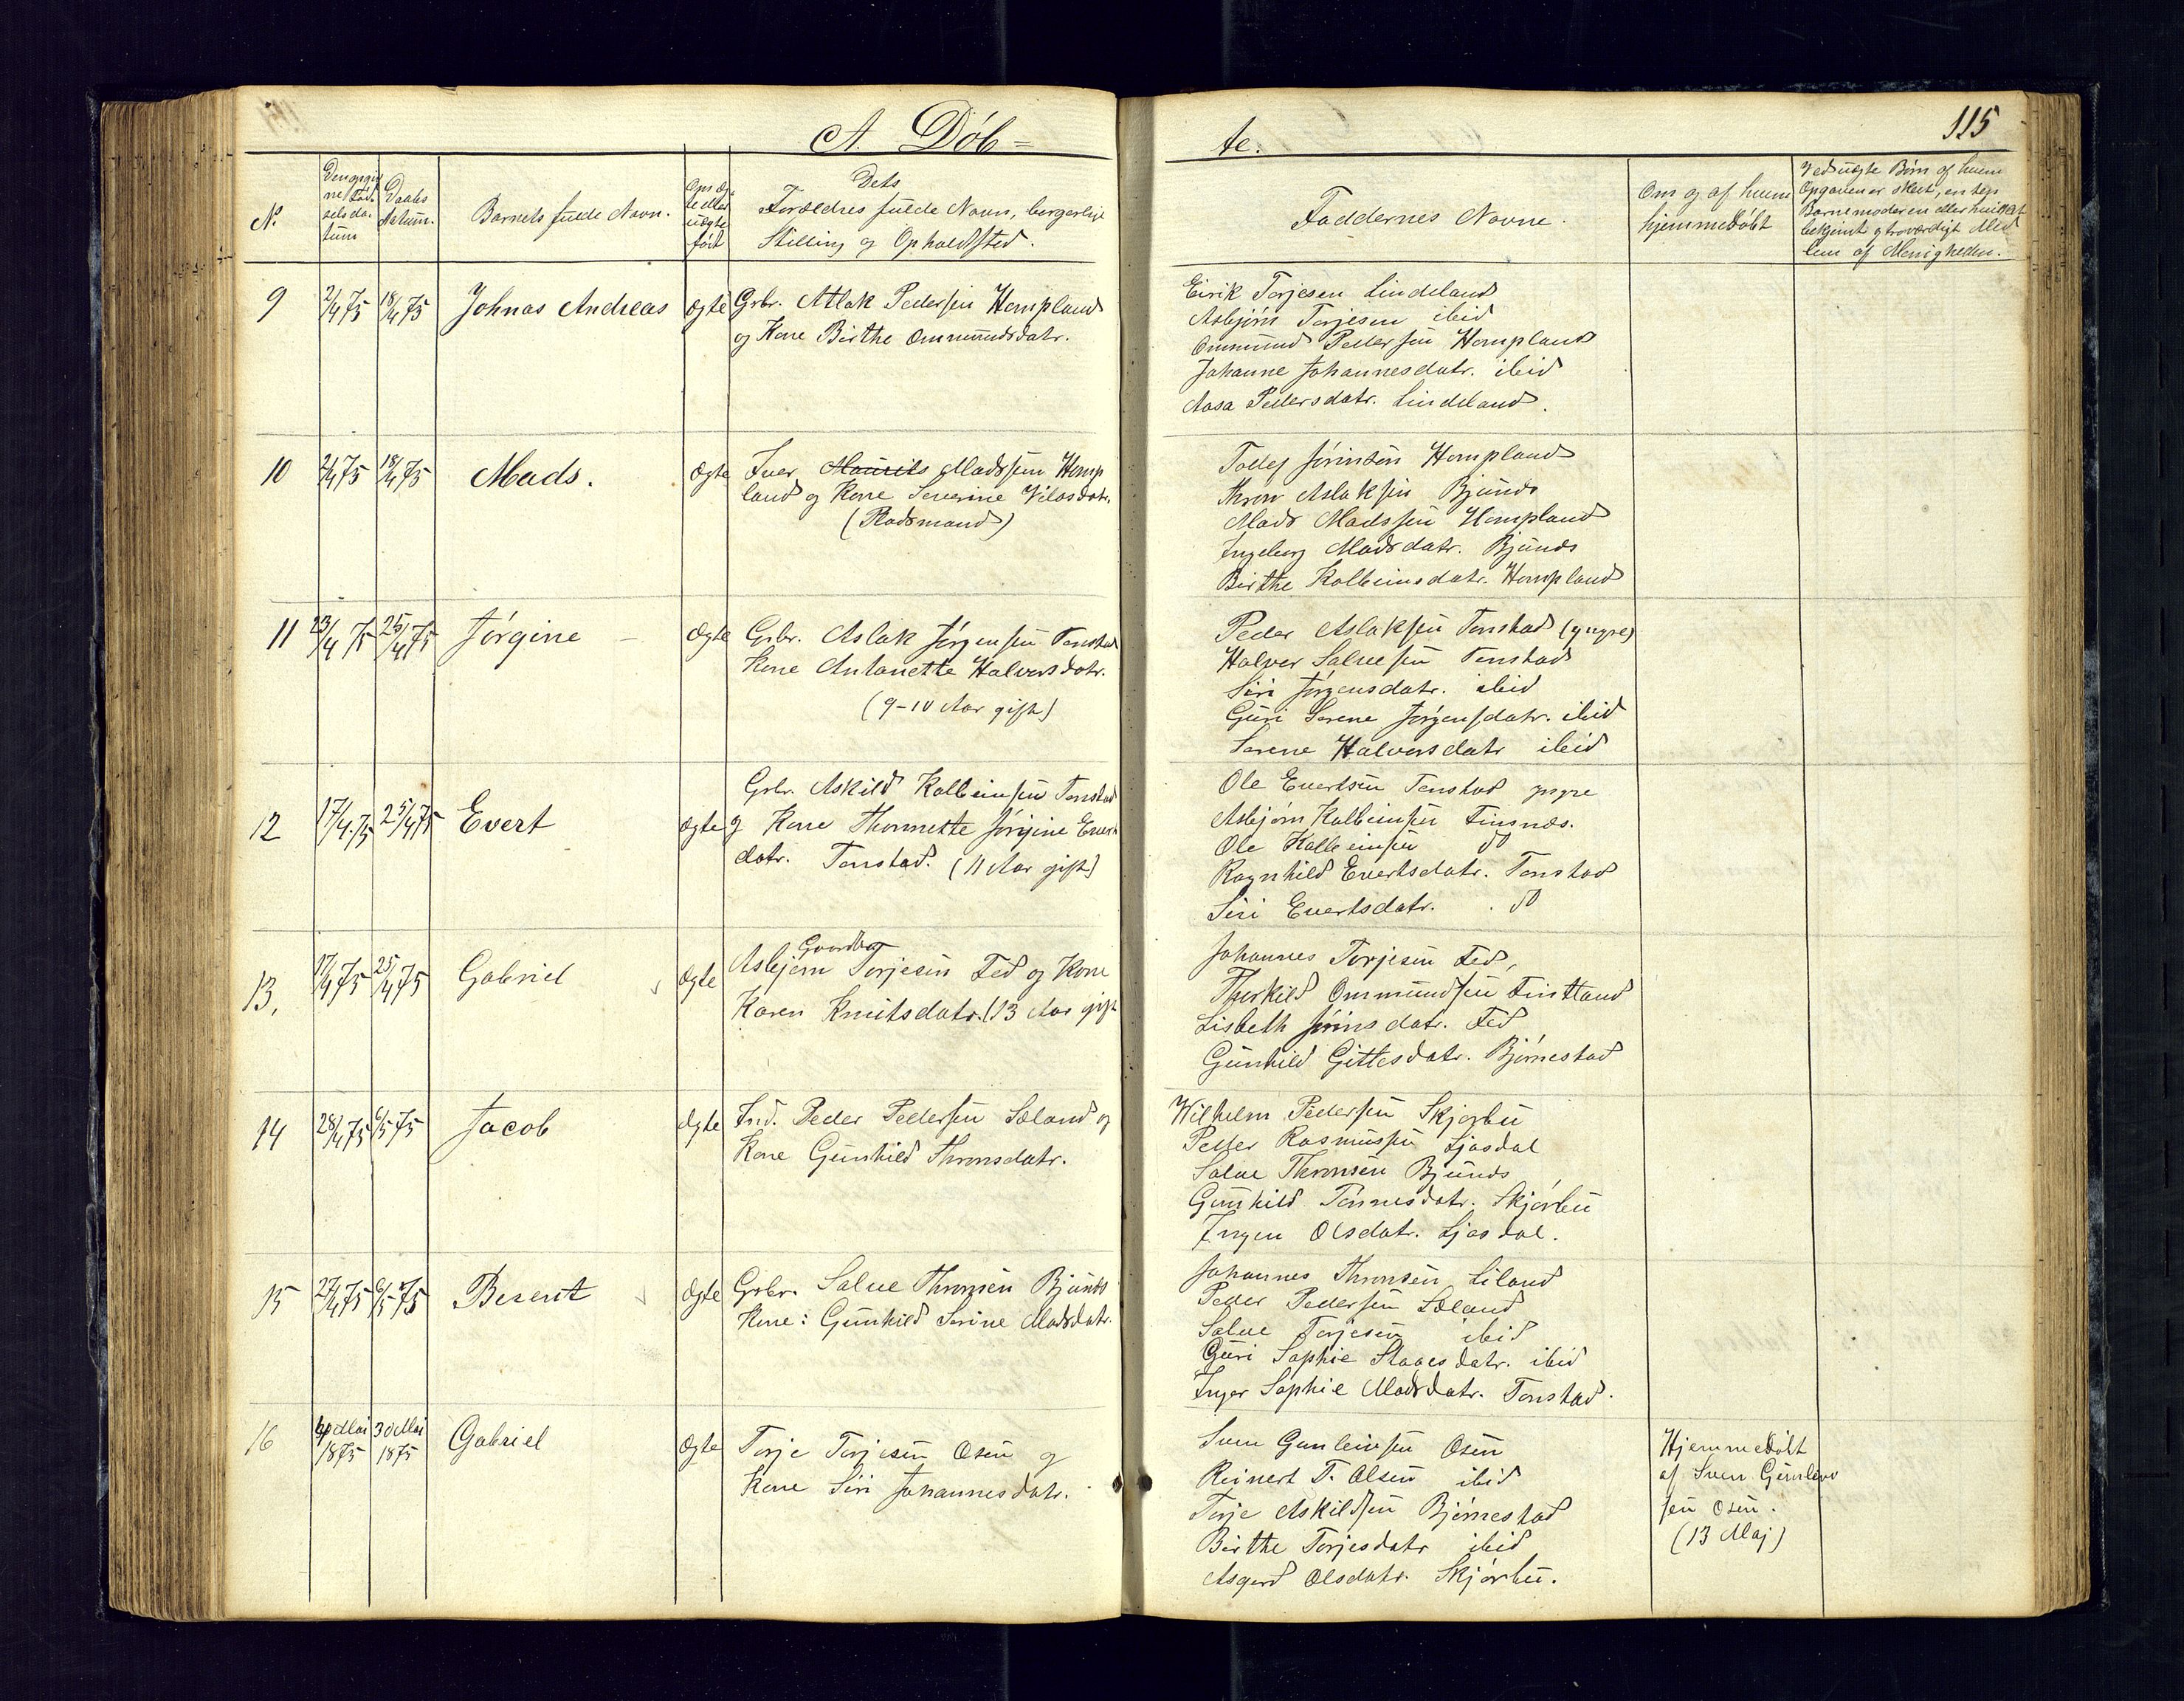 A. Döb-
te.
115
N.
Den opgiv
ne Föd
selsda-
tum
Daabs
datum.
Barnets fulde Navn.
Om æg-
te eller
uægte
født
Dets
Forældres fulde Navn, borgerlige
Stilling og Opholdsted.
Faddernes Navne.
Om og af hvem
hjemmedöbt
Ved uægte Børn af hvem
Opgaven er skeet, enten
Barnemoderen eller hvilket
bekjendt & troværdigt Med
lem af Menigheden.
9
2/4 75
18/4 75
Johnas Andreas
ægte
Grbr. Atlak Pedersen Hompland
og Kone Birthe Ommundsdatr.
Eirik Torjesen Lindeland
Asbjörn Torjesen ibid
Ommund Pedersen Hompland
Johanne Johannesdatr. ibid
Aasa Pedersdatr. Lindeland.
10
2/4 75
18/4 75
Mads.
ægte
Iver Mourits Madssen Homp
land og Kone Severine Nilasdatr.
(Pladsmand)
Tollef Jörinsen Hompland
Thron Aslaksen Bjunds
Mads Madssen Hompland
Ingeborg Madsdatr. Bjunds
Birthe Kolbeinsdatr. Hompland
11
23/4 75
25/4 75
Jörgine
ægte
Grbr. Aslak Jörgensen Tonstad
Kone Antonette Halvorsdatr.
(9-10 Aar gift)
Peder Aslaksen Tonstad (yngre)
Halvor Salvesen Tonstad
Siri Jörgensdatr. ibid
Guri Serene Jörgensdatr. ibid
Serene Halvorsdatr ibid
12
17/4 75
25/4 75
Evert
ægte
Grbr. Askild Kolbeinsen Tonstad
og Kone Thonnette Jörgine Everts
datr. Tonstad. (11 Aar gift)
Ole Evertsen Tonstad yngre
Asbjörn Kolbeinsen Finsnæs.
Ole Kolbeinsen do
Ragnhild Evertsdatr. Tonstad
Siri Evertsdatr. do
13.
17/4 75
25/4 75
Gabriel
ægte
Gaardbr
Asbjörn Torjesen Fed og Kone
Karen Knutsdatr. (13 Aar gift
Johannes Torjesen Fed,
Therkild Ommundsen Fintland
Lisbeth Jörinsdatr. Fed
Gunhild Gittesdatr. Björnestad
14
28/4 75
6/5 75
Jacob
ægte
Ind. Peder Pedersen Sæland og
Kone Gunhild Thronsdatr.
Wilhelm Pedersen Skjerbu
Peder Rasmussen Ljosdal
Salve Thronsen Bjunds
Gunhild Tönnesdatr. Skjörbu
Ingen Olsdatr. Ljosdal.
15
27/4 75
6/5 75
Berent
ægte
Grbr. Salve Thronsen Bjunds
Kone: Gunhild Serine Madsdatr.
Johannes Thronsen Liland
Peder Pedersen Sæland
Salve Torjesen ibid
Guri Sophie Staaesdatr. ibid
Inger Sophie Madsdatr. Tonstad.
16
Mai
1875
30 Mai
1875
Gabriel
ægte
Torje Torjesen Osen og
Kone Siri Johannesdatr.
Sven Gunleivsen Osen
Reinert T. Olsen ibid
Torje Askildsen Björnestad
Birthe Torjesdatr ibid
Asgerd Olsdatr. Skjörbu.
Hjemmedöbt
af Sven Gunleiv
sen Osen.
(13 Maj)